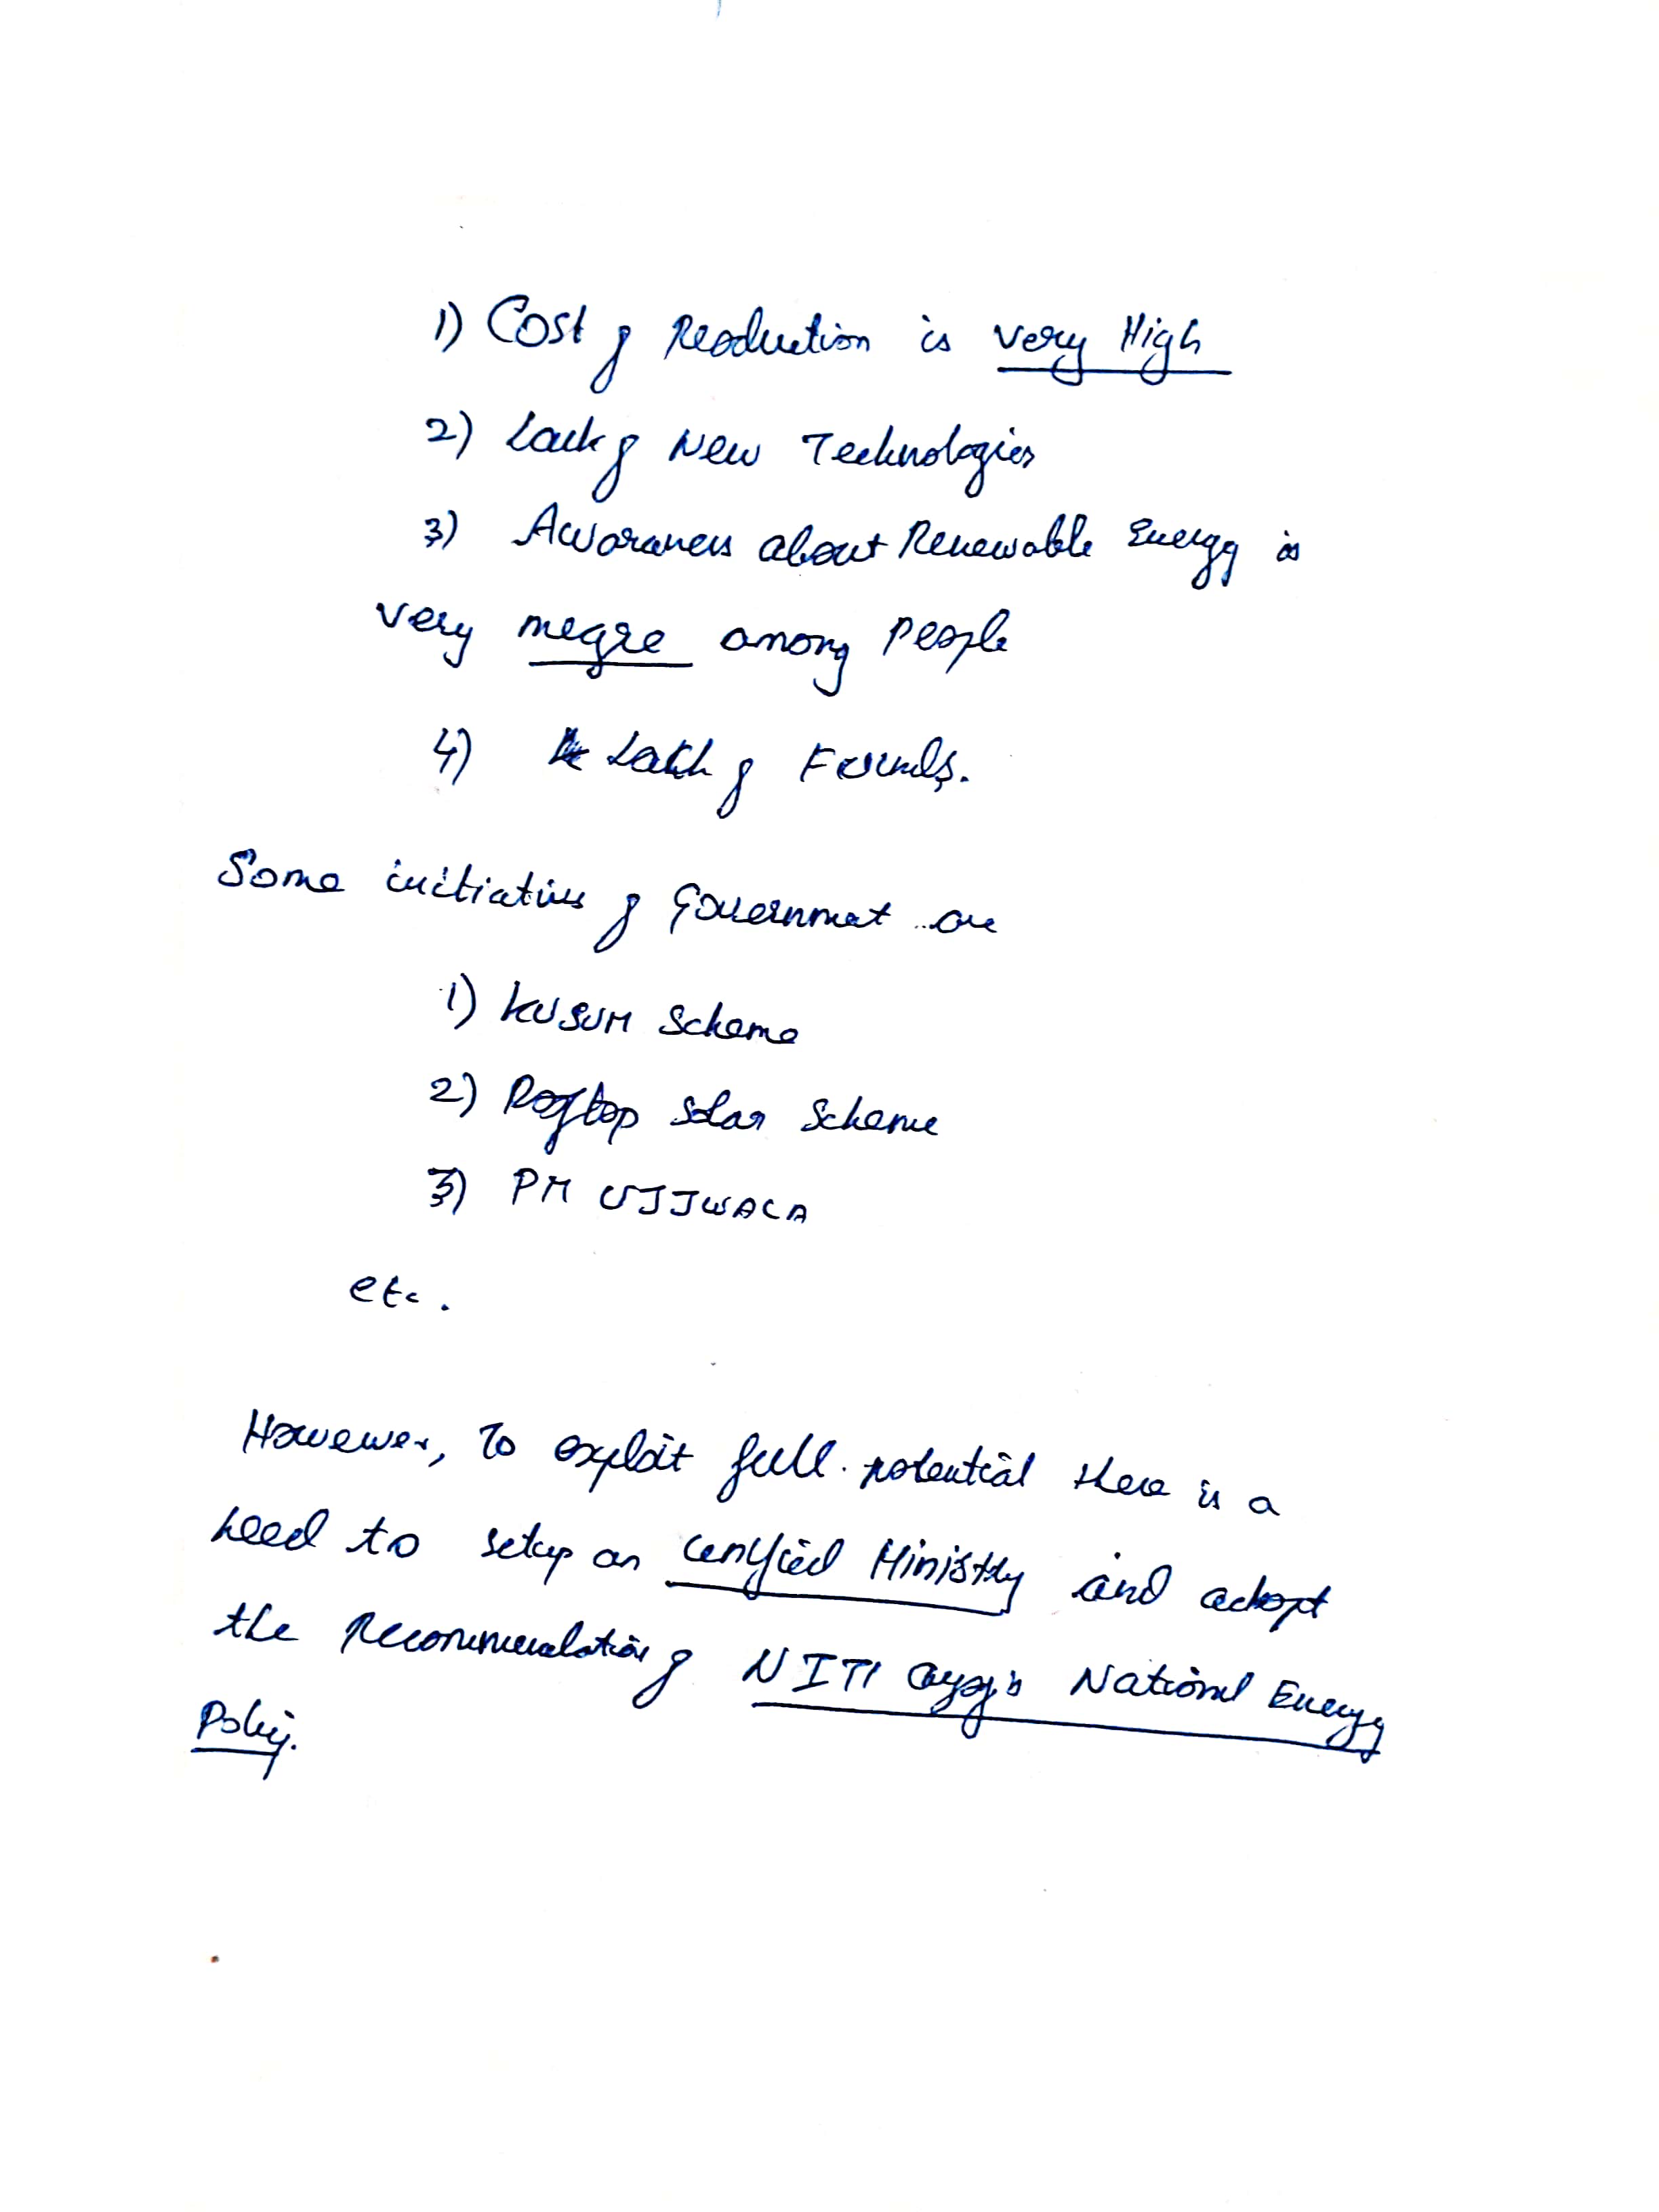 1) Cost of Production is very High
2) Lack of New Technologies
3) Awareness about Renewable Energy is
very megre among people
4) Lack of Funds.
Some initiatives of Government are
1) KUSUM Scheme
2) Rooftop Solar Scheme
3) PM UJJWALA
etc.
However, to exploit full potential there is a
need to setup an unified Ministry and adopt
the Recommendation of NITI Ayog's National Energy
Policy.